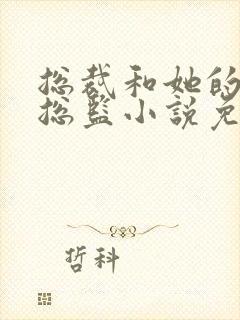 总裁和她的
总监小說免
哲科